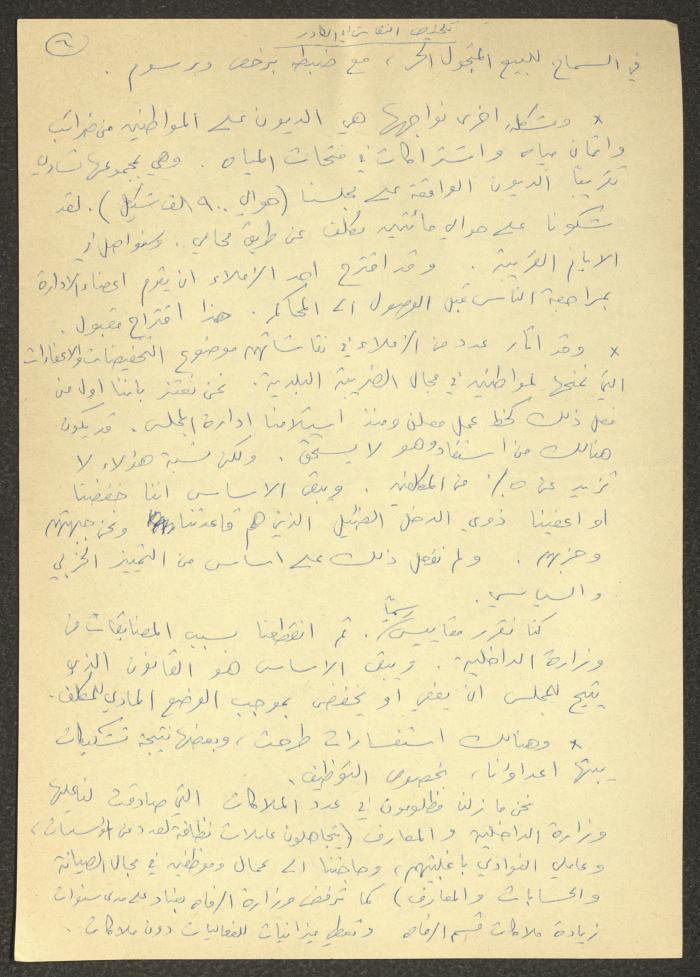 ٦
تلخيص النقاش في الكادر
في السماح للبيع المتجول الحر، مع ضبطه برخص وبرسوم.
× ومشكلة اخرى نواجهها هي الديون على المواطنين من ضرائب
واثمان مياه واشتراكات في فتحات المياه. وهي بمجموعها تساوي
تقريبًا الديون الواقعة على مجلسنا (حوالي ٩٠٠ الف شيكل). لقد
شكونا على حوالي مائتين مكلف عن طريق محامي. وسنواصل في
الايام القريبة. وقد اقترح احد الزملاء ان يقوم اعضاء الادارة
بمراجعة الناس قبل الوصول الى المحاكم. هذا اقتراح مقبول.
× وقد اثار عدد من الزملاء في نقاشاتهم موضوع التخفيضات والاعفاءات
التي نمنحها لمواطنين في مجال الضريبة البلدية. نحن نعتز باننا اول من
فعل ذلك كخط عمل معلن ومنذ استلامنا ادارة المجلس. قد يكون
هنالك من استفاد وهو لا يستحق. ولكن نسبة هؤلاء لا
تزيد عن ٥٪ من المكلفين. ويبقى الاساس اننا خفضنا
او اعفينا ذوي الدخل الضئيل الذين هم قاعدتنا ونحن جبهتهم
وحزبهم. ولم نفعل ذلك على اساس من التمييز الحزبي
والسياسي.
كنا نقرر مقاييس رسميًا. ثم انقطعنا بسبب المضايقات من
وزارة الداخلية. ويبقى الاساس هو القانون الذي
يتيح للمجلس ان يعفي او يخفض بموجب الوضع المادي للمكلف.
× وهنالك استفسارات طرحت، وبعضها نتيجة تشكيكات
يبثها اعداؤنا، بخصوص التوظيف.
نحن ما زلنا مظلومون في عدد الملاكات التي صادقت لنا عليها
وزارة الداخلية والمعارف (يتجاهلون عاملات نظافة لعدد من المؤسسات،
وعاملي النوادي باغلبيتهم، وحاجتنا الى عمال وموظفين في مجال الصيانة
والحسابات والمعارف) كما ترفض وزارة الرفاه بعناد على مدى سنوات
زيادة ملاكات قسم الرفاه وتعطي ميزانيات للفعاليات دون ملاكات.